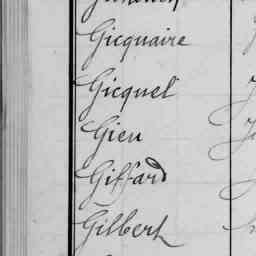 Gicquaire
Gicquel
Gieu
Giffard
Gilbert